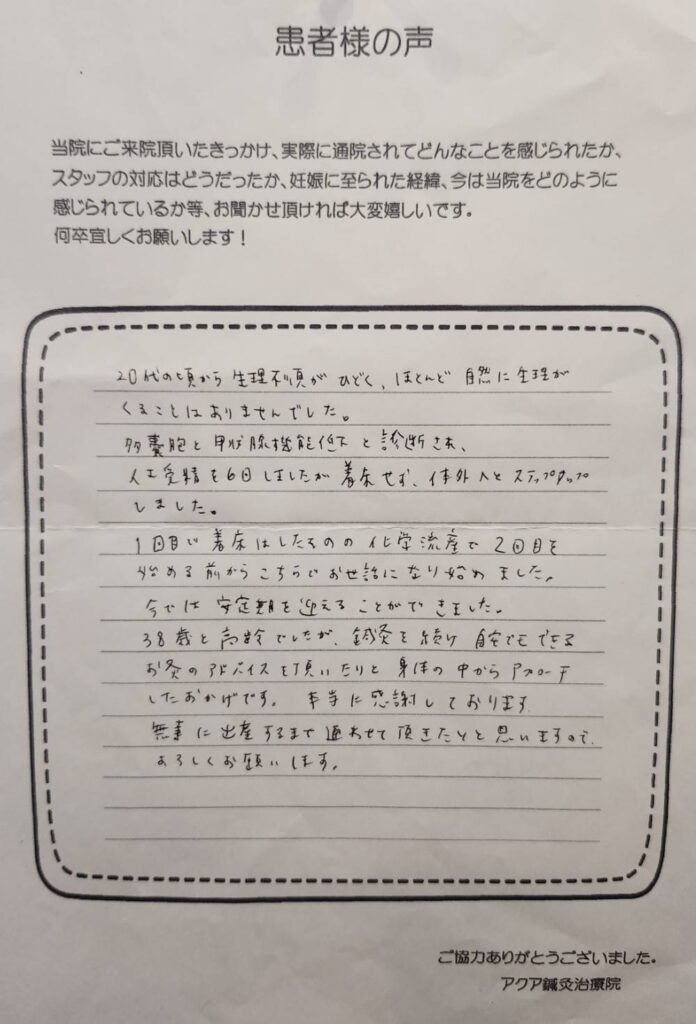 患者様の声
当院にご来院頂いたきっかけ、実際に通院されてどんなことを感じられたか、
スタッフの対応はどうだったか、妊娠に至られた経緯、今は当院をどのように
感じられているか等、お聞かせ頂ければ大変嬉しいです。
何卒宜しくお願いします！
20代の頃から生理不順がひどく、ほとんど自然に生理が
くることはありませんでした。
多嚢胞と甲状腺機能低下と診断され、
人工受精を6回しましたが着床せず、体外へとステップアップ
しました。
1回目で着床はしたものの化学流産で2回目を
始める前からこちらでお世話になり始めました。
今では安定期を迎えることができました。
38歳と高齢でしたが、鍼灸を続け自宅でもできる
お灸のアドバイスを頂いたりと身体の中からアプローチ
したおかげです。本当に感謝しております。
無事に出産するまで通わせて頂きたいと思いますので、
よろしくお願いします。
ご協力ありがとうございました。
アクア鍼灸治療院